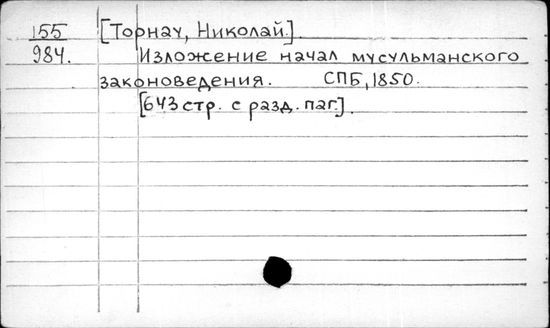 155 [Торнау, Николай.].
984. Изложение начал мусульманского
законоведения. СПБ, 1850.
[643 стр. с разд. паг.].